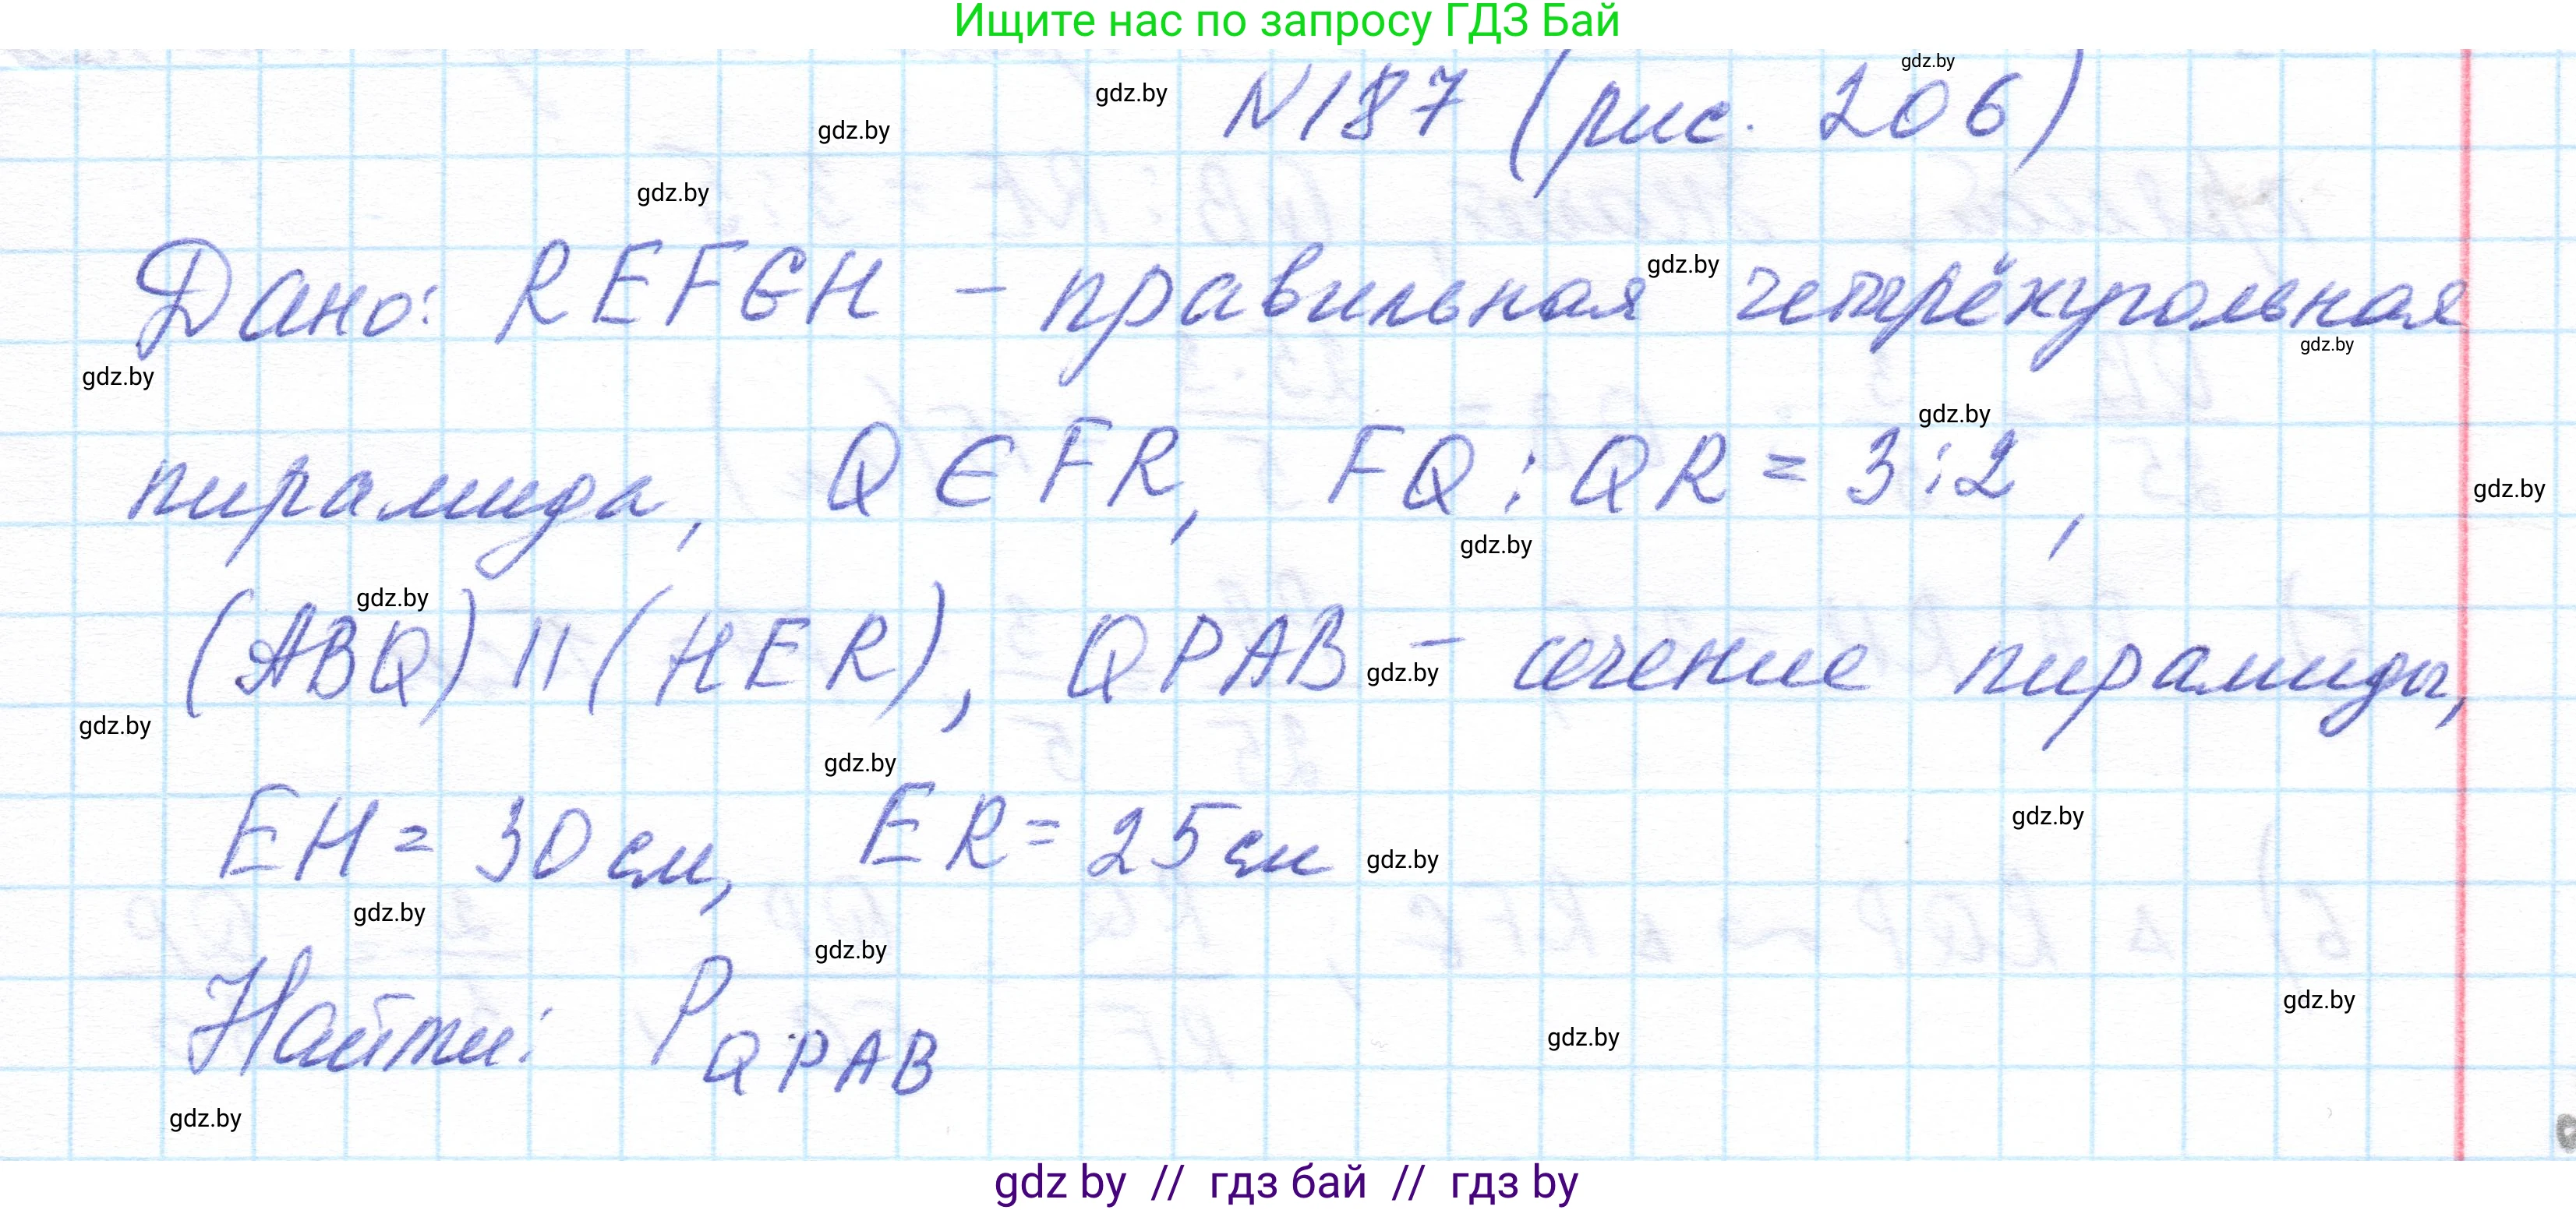 Ищите нас по запросу ГДЗ Бай
N187 (рис. 206)
gdz.by
gdz.by
gdz.by
gdz.by
Дано: REFGH – правильная четырёхугольная
gdz.by
gdz.by
gdz.by
gdz.by
пирамида, Q ∈ FR, FQ : QR = 3 : 2,
gdz.by
gdz.by
gdz.by
(ABQ) || (HER), QPAB – сечение пирамиды,
gdz.by
gdz.by
gdz.by
EH = 30 см, ER = 25 см
gdz.by
gdz.by
gdz.by
gdz.by
Найти: P QPAB
gdz.by
gdz.by
gdz.by
gdz by // гдз бай // гдз by